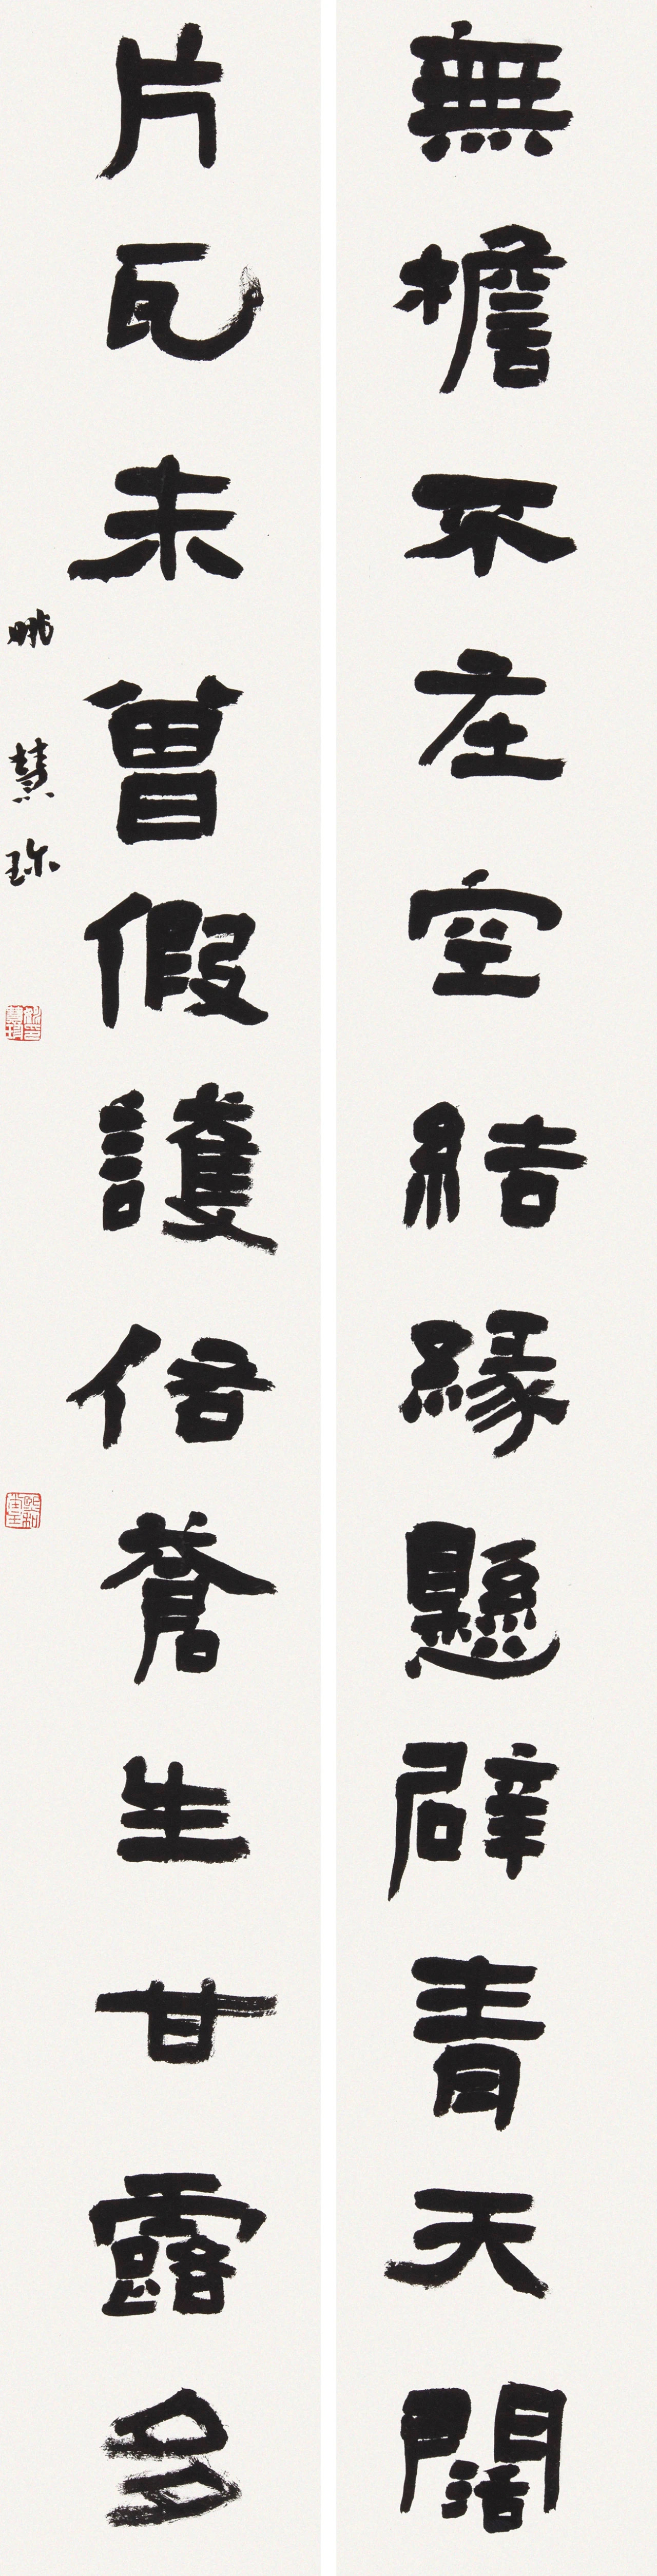 無檐不在空結緣懸壁青天闊
片瓦未曾假護倍蒼生甘露多
慧珍